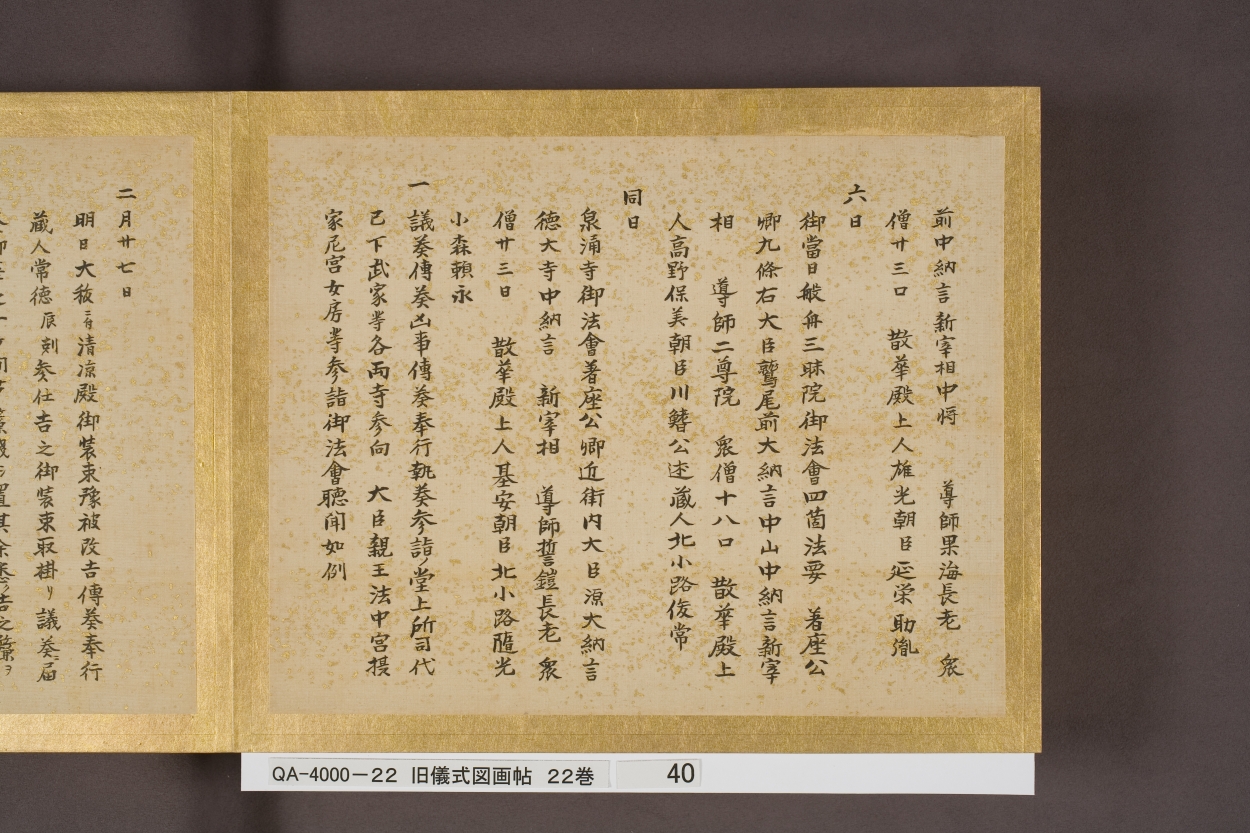 前中納言新宰相中将　導師果海長老　衆
僧廿三口　散華殿上人雄光朝臣延栄助胤
六日
御當日般舟三昧院御法會四箇法要　著座公
卿九條右大臣鷲尾前大納言中山中納言新宰
相　導師二尊院　衆僧十八口　散華殿上
人高野保美朝臣川鰭公述蔵人北小路俊常
同日
泉涌寺御法會著座公卿近衛内大臣源大納言
徳大寺中納言　新宰相　導師誓鎧長老　衆
僧廿三日　散華殿上人基安朝臣北小路隨光
小森頼永
一　議奏傳奏凶事傳奏奉行執奏参詣ノ堂上所司代
已下武家等各両寺参向　大臣親王法中宮摂
家尼宮女房等参詣御法會聴聞如例
二月廿七日
明日大祓ニ付清凉殿御装束豫被改吉傳奏奉行
蔵人常徳辰刻参仕吉之御装束取掛リ議奏届
QA-4000-22　旧儀式図画帖　22巻　40